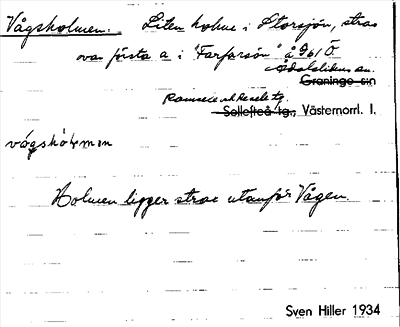 Vågsholmen. Liten holme i Storsjön, strax
ovan första a i "Farfarsön" å 96 1 Ö
Ådalslidens sn.
Graninge sn
Ramsele och Resele tg.
Sollefteå tg., Västernorrl. l.
vågshólmen
Holmen ligger strax utanför Vågen.
Sven Hiller 1934